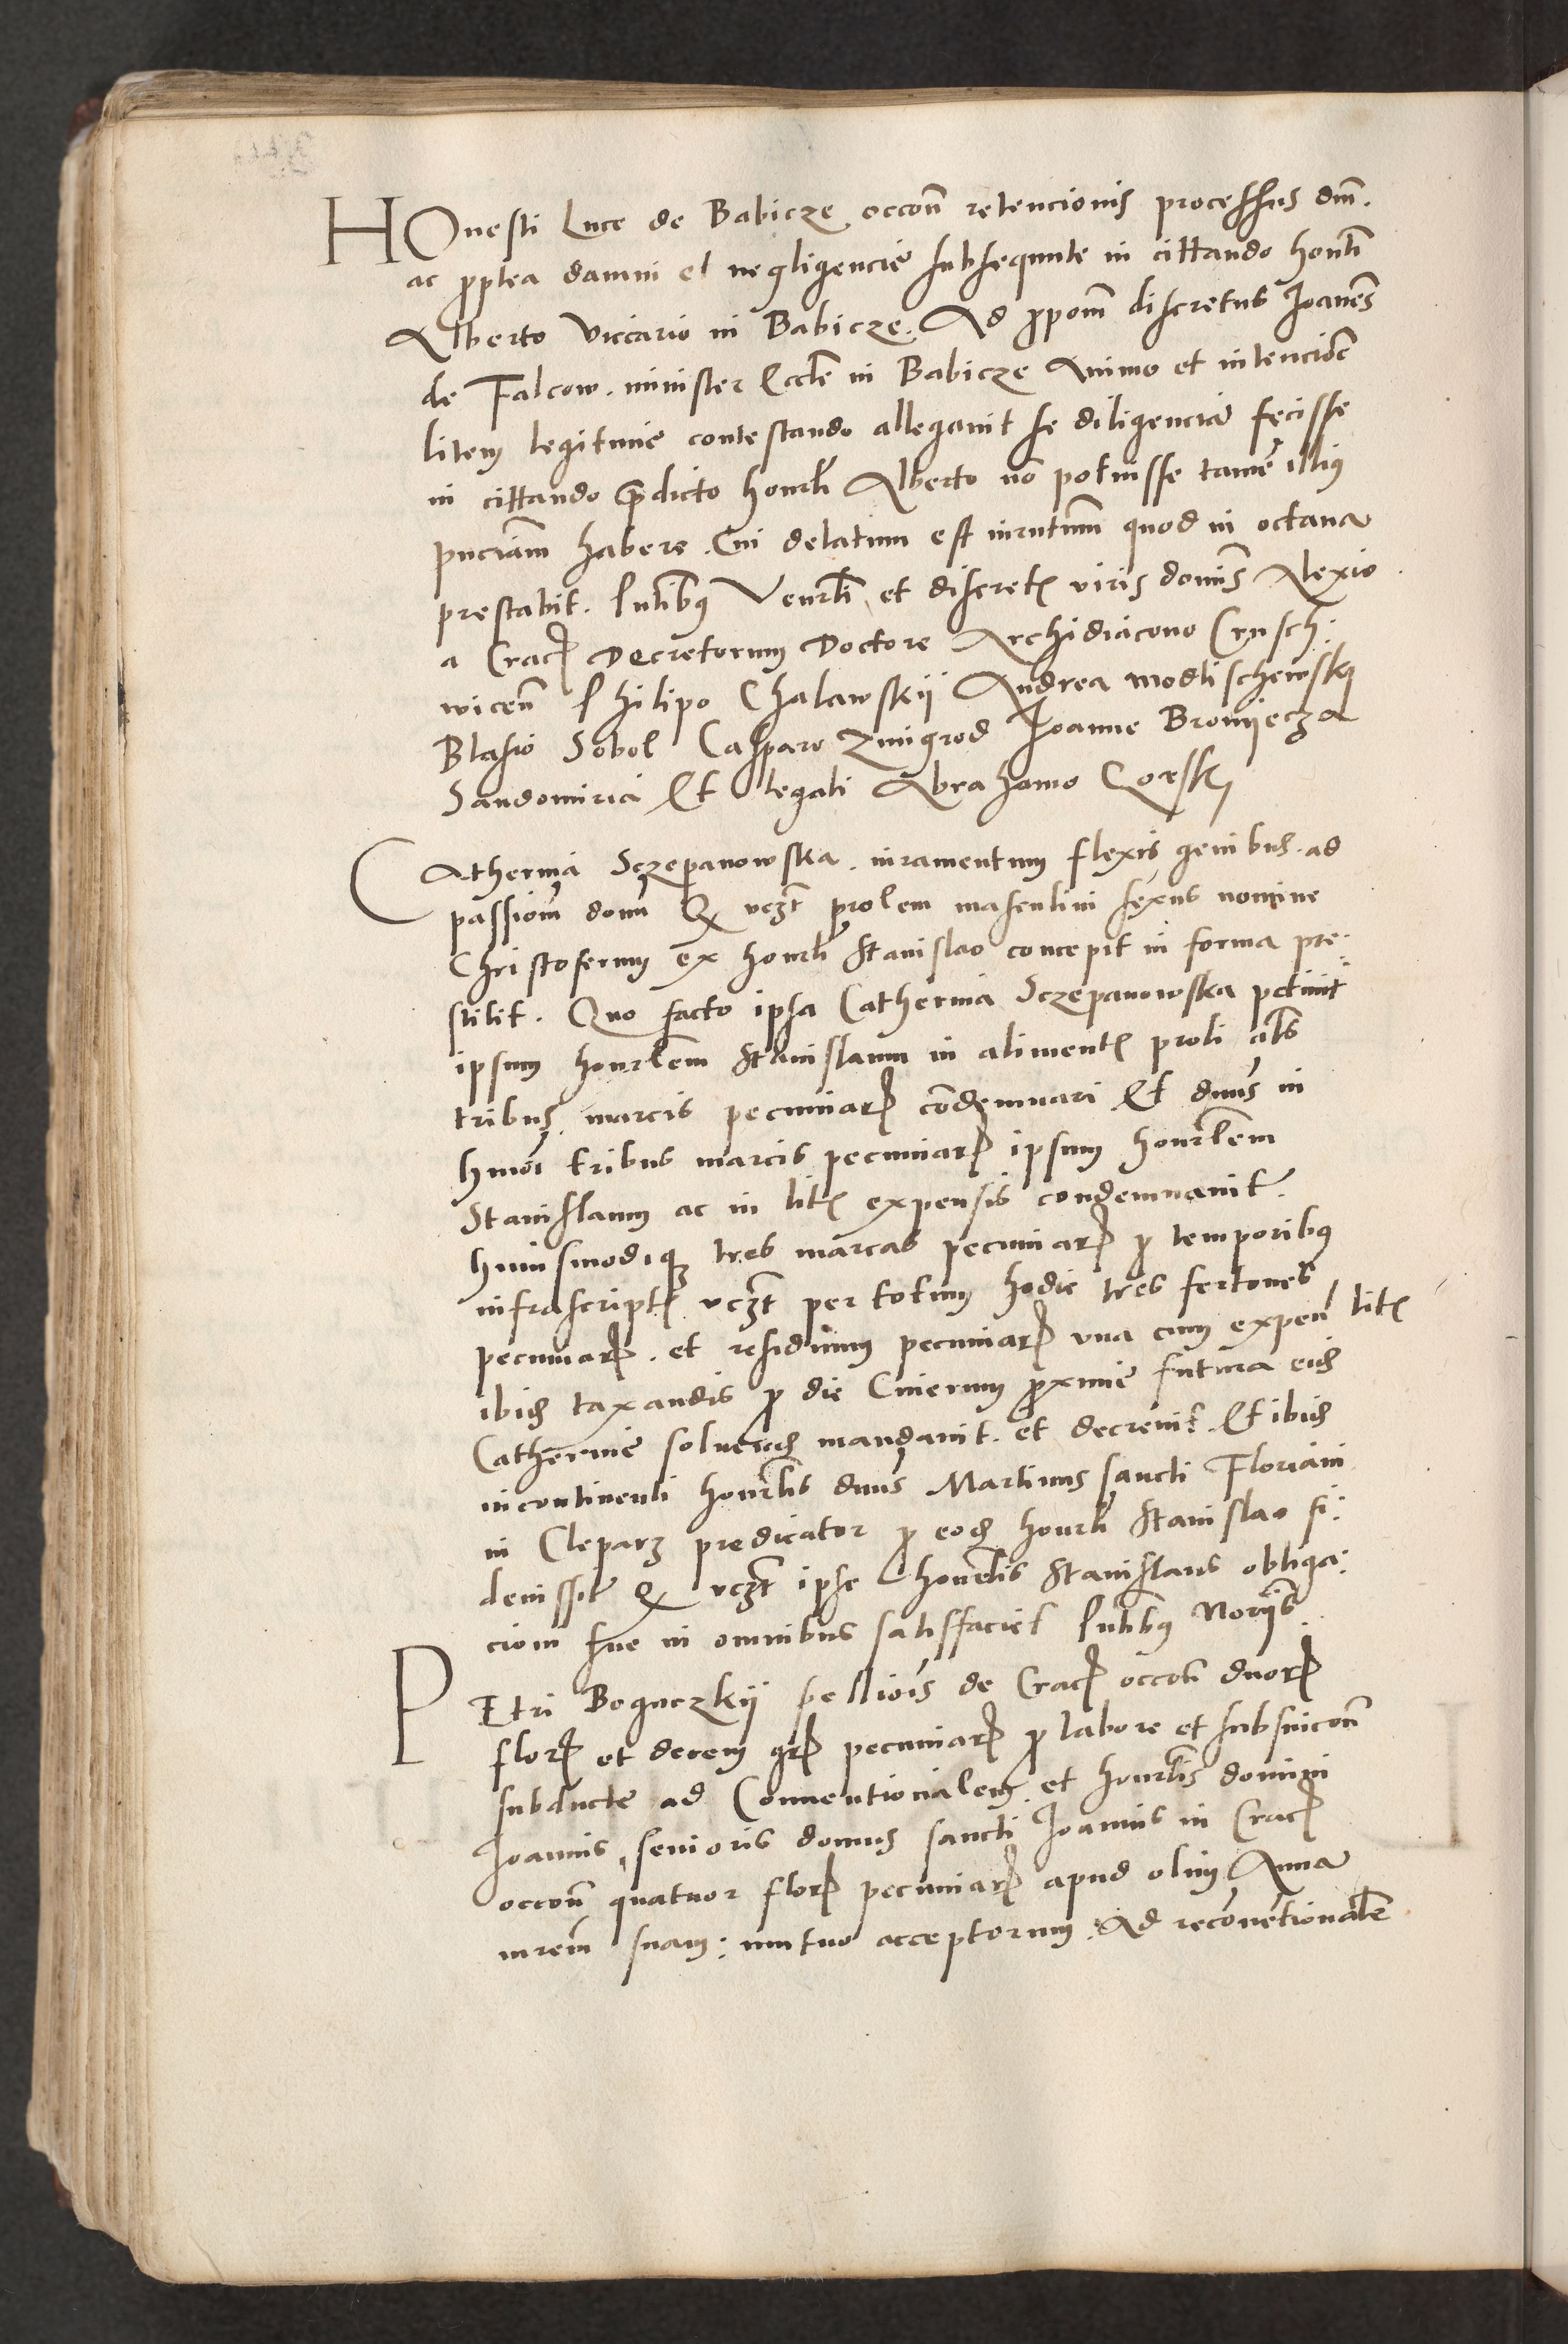 HOnesti Luce de Babicze occoñ retencionis processus dm̃.
ac ꝓptea damni et negligencie subsequute in cittando honẽli
Alberto Viccario in Babicze. Ad ꝓpom̃ discretus Joanẽs
de Falcow. minister Eccłe in Babicze Animo et intencioẽ
litem legitime contestando allegauit se diligenciã fecisse
in cittando p̃dicto honorłi Alberto nõ potuisse tamẽ illius
pñciam habere. Cui delatum est iurãtum quod in octaua
prestabit. Pñtibus Venerłi et discretꝭ viris dominis Alexio
a Cracꝭ Decretorum Doctore Archidiacono Crusch:
wiceñ Philipo Chalawskij Andrea Modlischewskij
Blasio Sobol Casparo Zmigrod Joanne Bronyecz a
Sandomiria Et legali Abrahamo Gorskj
CAtherina Sczepanowska. iuramentum flexis genibus. ad
passiom̃ domi Qꝫ vczt prolem masculini sexus nomine
Christoferum ex honorłi Stanislao concepit in forma pre:
stitit. Quo facto ipsa Catherina Sczepanowska petiuit
ipsum honorłem Stanislaum in alimentꝭ proli alẽs
tribus marcis pecuniarꝭ cõdemnari Et dnus in
hmõi tribus marcis pecuniarꝭ ipsum honorłem
Stanislaum ac in litꝭ expensis condemnauit.
huiusmodiqꝫ tres marcas pecuniarꝭ ꝓ temporibus
infrascriptꝭ vczt per totum hodie tres fertones
pecuniarꝭ. et residuum pecuniarꝭ vna cum expeñ litꝭ
ibidem taxandis ꝓ die Cinerum ꝓxime futura eidem
Catherine soluendum mandauit. et decreuit. Et ibidem
incontinenti honorłis dnus Martinus sancti Floriani
in Cleparz predicator ꝓ eodem honorłi Stanislao fi:
deiussit Qꝫ vczt ipse honorłis Stanislaus obliga:
ciom̃ sue in omnibus satisfaciet Pñtibus Norijs.
PEtri Boguczkij pellioĩs de Cracꝭ occoñ duorꝭ
florꝭ et decem grꝭ pecuniarꝭ ꝓ labore et subsuicoñ
subducte ad Conuentionalem. et honorłis domini
Joannis senioris domus sancti Joannis in Cracꝭ
occoñ quatuor florꝭ pecuniarꝭ apud olim Anna
uxorem̃ suam: mutuo acceptorum. Ad reconuẽtionalẽ